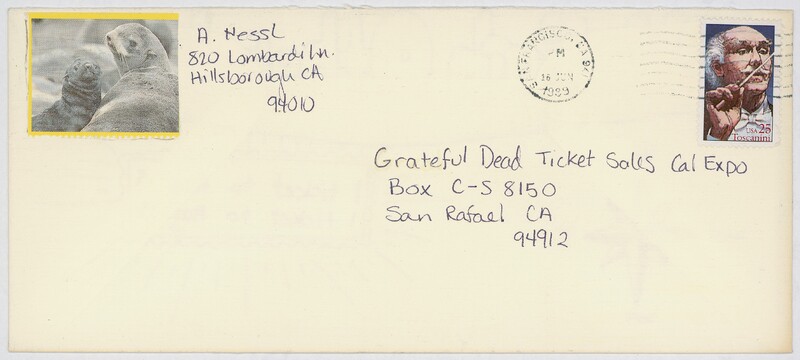 A. Nessl
820 Lombardi Ln.
Hillsborough CA
94010
SAN FRANCISCO, CA 941
PM
16 JUN
1989
USA 25
Toscanini
Grateful Dead Ticket Sales Cal Expo
Box C-S 8150
San Rafael CA
94912